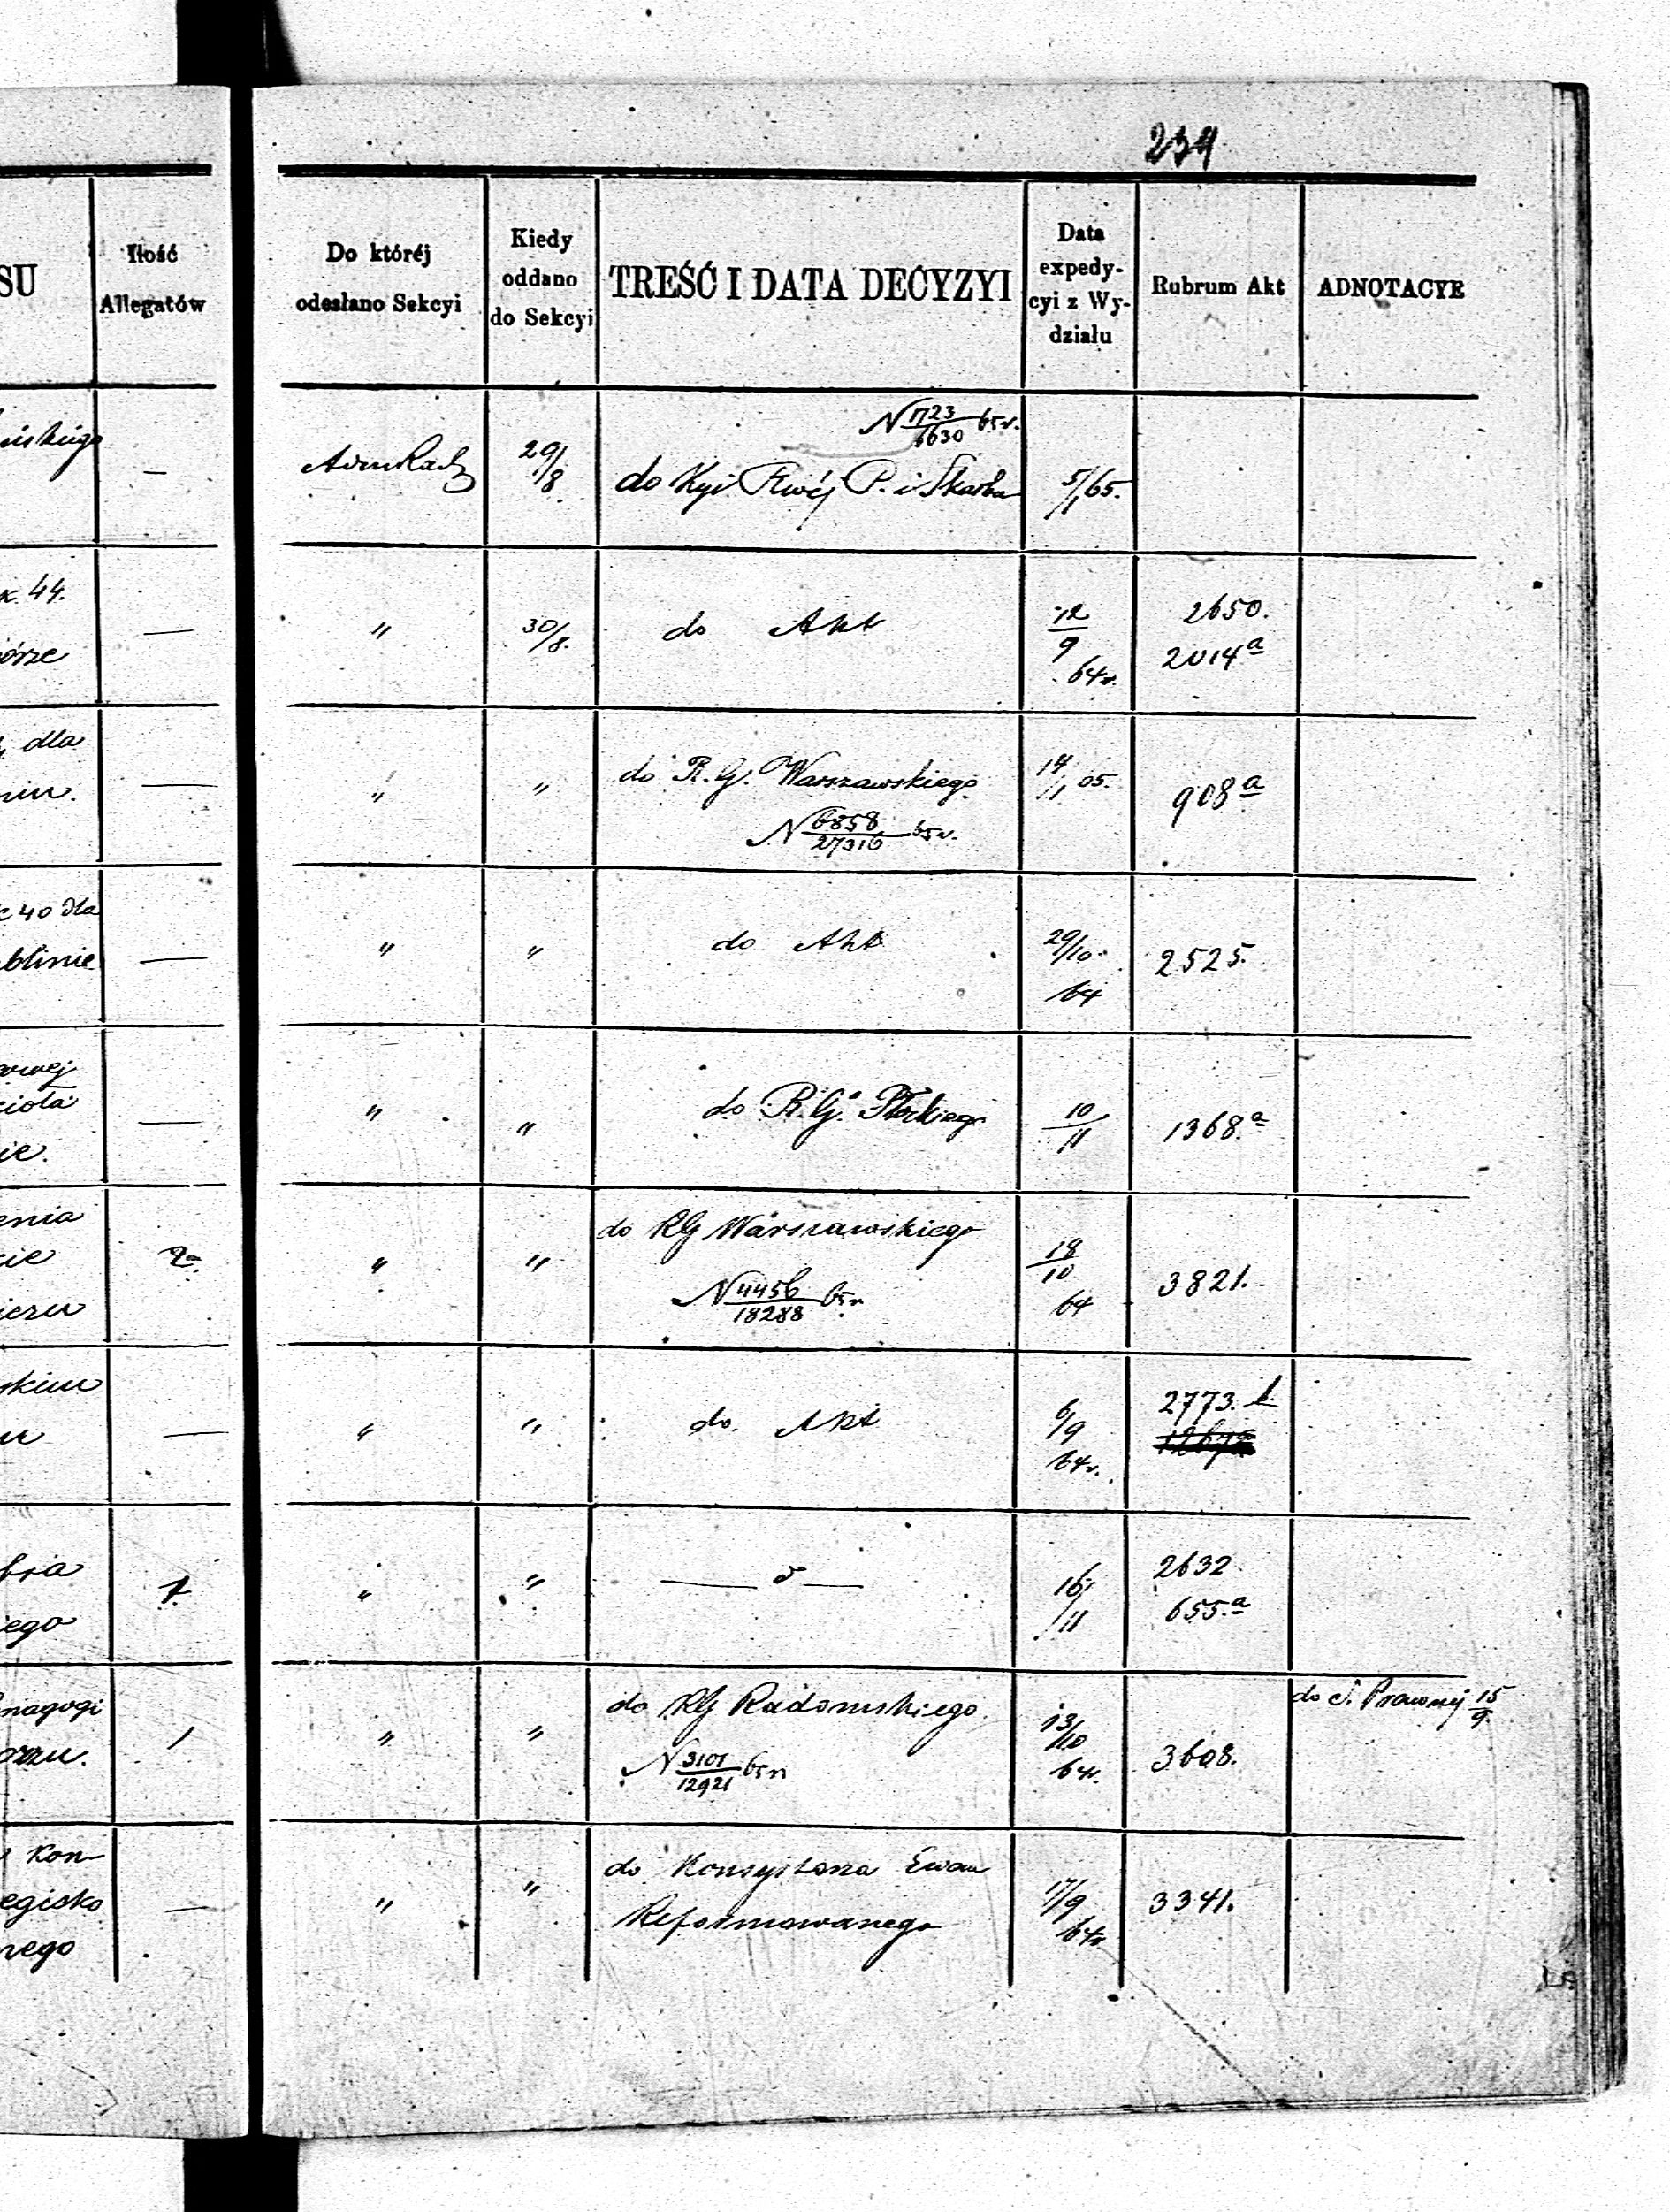 234
SU
Ilość
Allegatów
Do któréj
odesłano Sekcyi
Kiedy
oddano
do Sekcyi
TREŚĆ I DATA DECYZYI
Data
expedy-
cyi z Wy-
działu
Rubrum Akt
ADNOTACYE
—
29/8
N 1723/6630 65 r.
do Kyi Rwéj P. i Skarbu
5/1 65.
44.
órze
—
"
30/8.
do Akt
12/9
64 r.
2650.
2014 a
dla
—
"
"
do R. G. Warszawskiego
N 6858/27316 65 r.
14/1 65.
908 a
40 dla
blinie
—
"
"
do Akt
29/10.
64
2525.
owej
ciola
ie.
—
"
"
do R. G. Płockiego
10/11
1368. a
enia
cie
ierzu
2
"
"
do RG Warszawskiego
N 4456/18288 65 r
18/10
64
3821.
skim
u
—
"
"
do Akt
6/9
64 r.
2773. 1.
ego
1
"
"
— " —
16/11
2632
655. a
nagogi
orzu.
1
"
"
do RG Radomskiego
N 3101/12921 65 r
13/10
64 r.
3608.
do S. Prawnéj 15/9.
Kon-
egisko
nego
—
"
"
do Konsystorza Ewan
Reformowanego
17/9
64 r
3341.